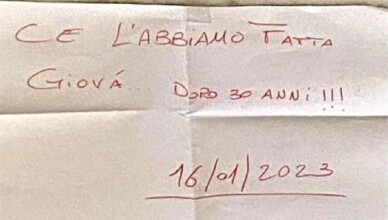 CE L'ABBIAMO FATTA
GIOVÁ... DOPO 30 ANNI!!!
16/01/2023